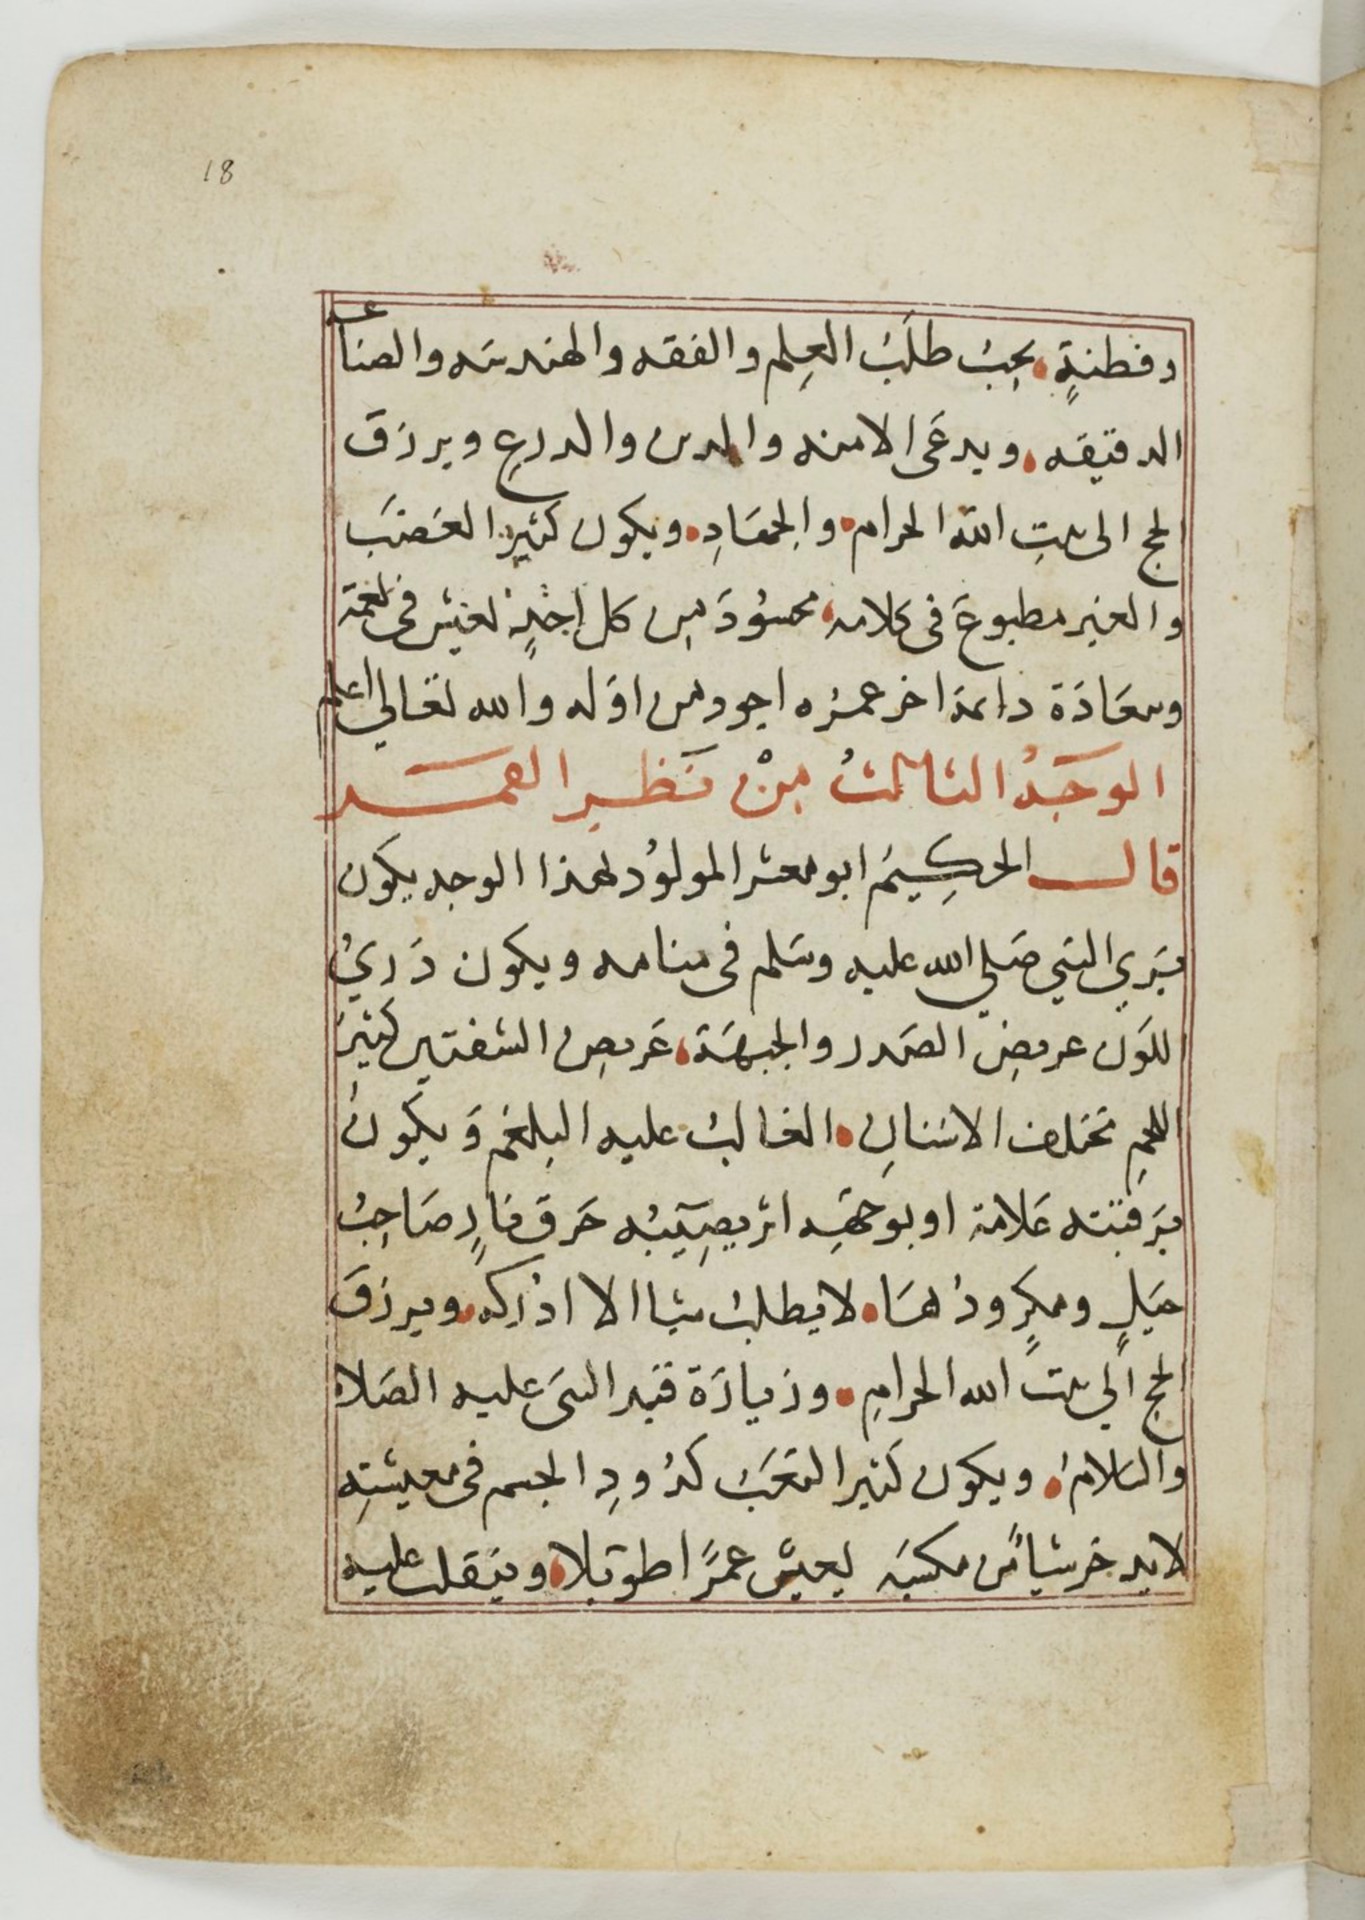 18
وفطنةٍ يحِبُ طلَبُ العِلم والفقه والهندسَه والصناعه
الدقيقه ويدعَى الامنه والدين والدرع ويرزق
الحج الى بيتِ الله الحرام والجهَادِ ويكون كثير الغضَب
والغير مطبوعَ فى كلامه محسُودَ مِن كل اَحَدٍ يعيش فى نعمة
وسعَادَة دايمة اخر عمرُه اجود من اوله والله تعَالي اعلم
الوَجهُ الثالثُ مِنْ نَظير القمَر
قال الحكِيمُ ابو معشر المولوُد لهذا الوجه يكون
يَري النبي صَلي الله عليه وسَلم فى منامه ويكون دَريُ
اللوَن عريضِ الصَدر والجبهَة عَريض الشفتين كثيرَ
اللحمِ مختلف الاسَنانِ الغالبُ عليه البلغم وَيكونُ
برَقبته عَلامة او بوجههِ اثر يصِيبُه حَرق نارٍ صَاحِبُ
حيَلٍ ومكرٍ ودُهَاء لا يطلبُ شيا الا ادُركه ويرزَق
الحج الي بيت الله الحرامِ وزيارَة قبر النبىَ عليه الصَلاة
والسَلامُ ويكون كثير التعَبُ كدُودِ الجسم فى معيشتِه
لايدخر شياً من مكسَبه يعيش عمرًا طويلا وينقلب عليه